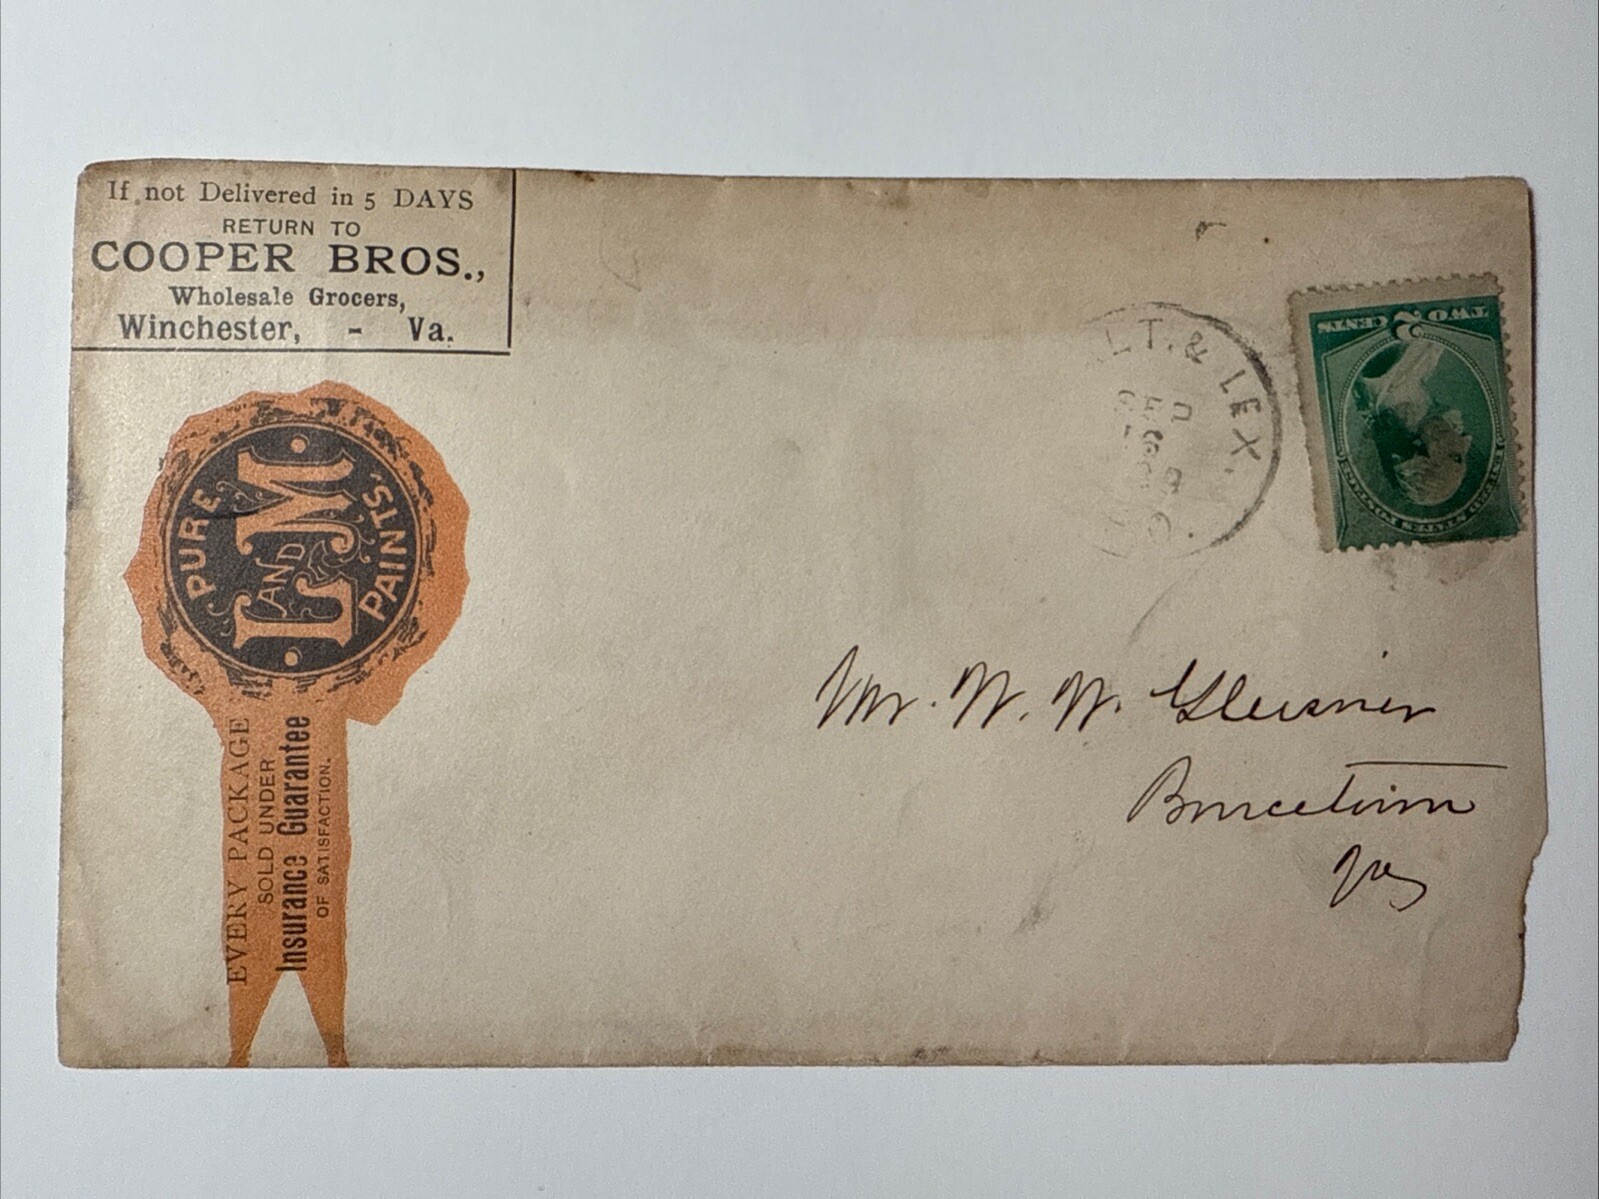 If not Delivered in 5 DAYS
RETURN TO
COOPER BROS.,
Wholesale Grocers,
Winchester, - Va.
PURE
L AND M
PAINTS.
EVERY PACKAGE
SOLD UNDER
Insurance Guarantee
OF SATISFACTION.
LT. & LEX.
TWO 2 CENTS
UNITED STATES POSTAGE
Mr. W. W.